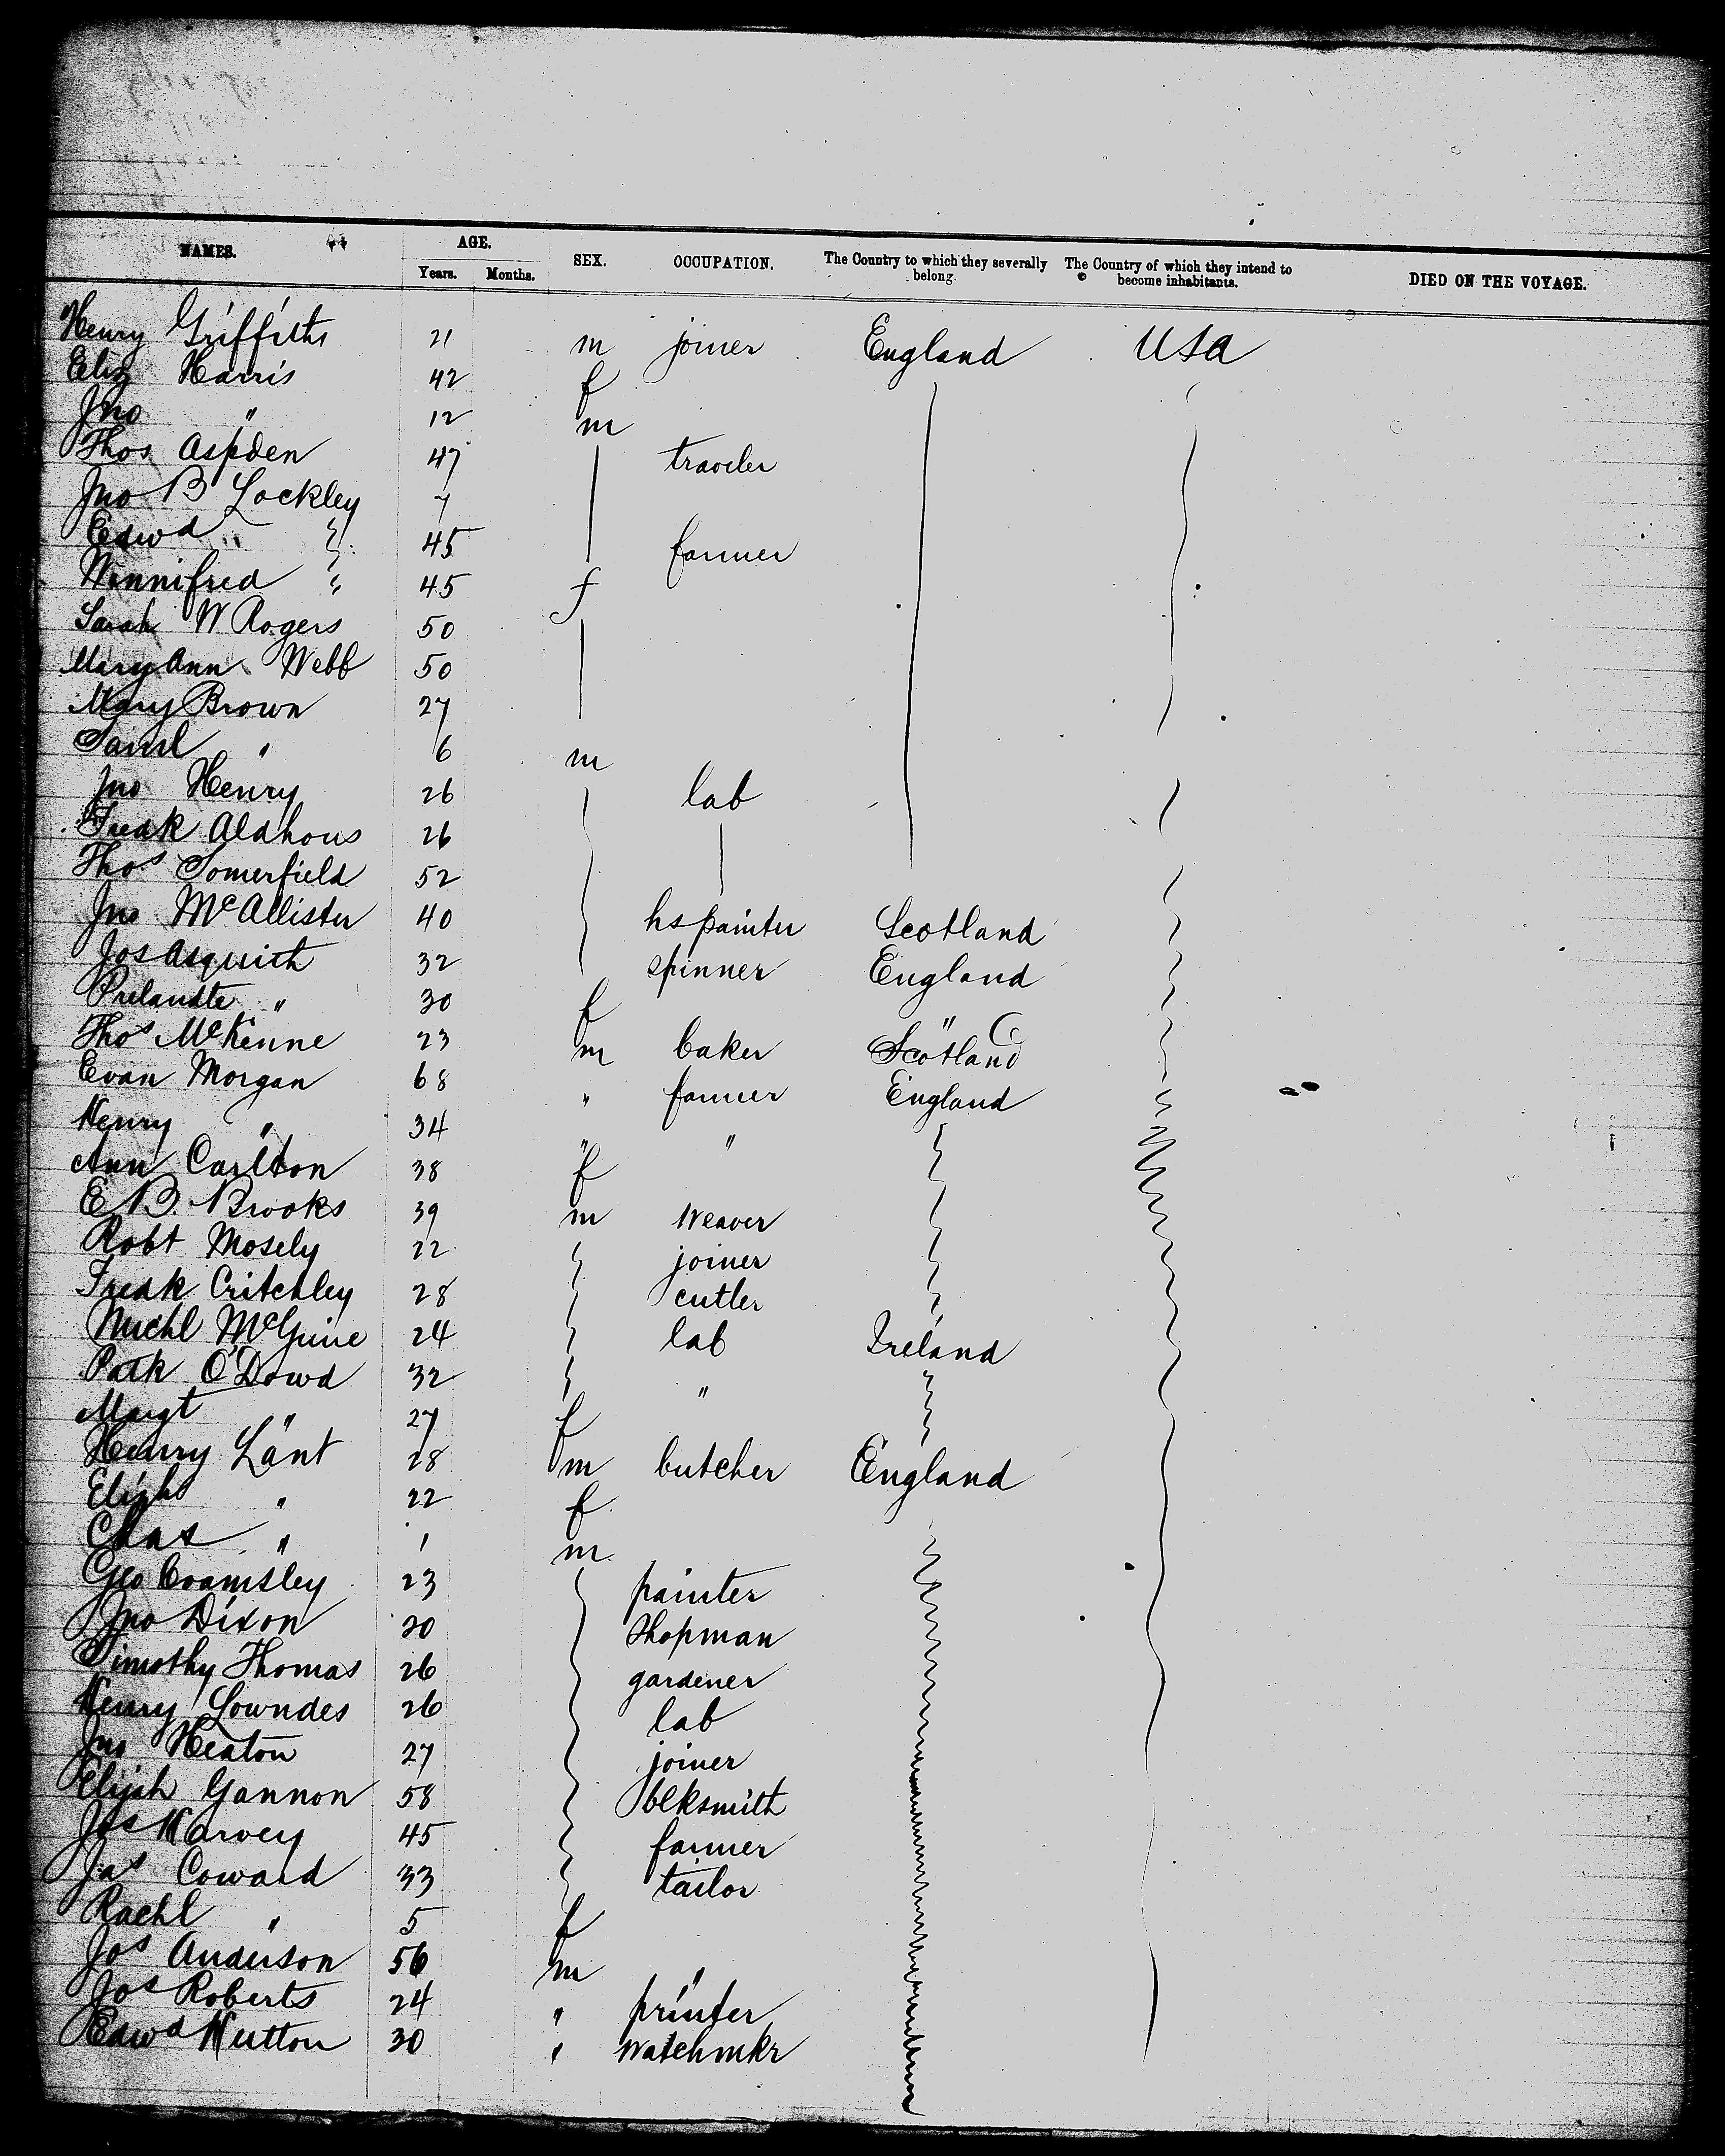 NAMES. AGE. SEX. OCCUPATION. The Country to which they severally belong. The Country of which they intend to become inhabitants. DIED ON THE VOYAGE.
Years. Months.
Henry Griffiths 21 m joiner England USA
Eliz Harris 42 f
Jno " 12 m
Thos Aspden 47 traveler
Jno B Lockley 7
Edwd " 45 farmer
Winnifred " 45 f
Sarah W Rogers 50
Mary Ann Webb 50
Mary Brown 27
Saml " 6 m
Jno Henry 26 lab
Fredk Aldhous 26
Thos Somerfield 52
Jno McAllister 40 hs painter Scotland
Jos Asquith 32 spinner England
" 30 f "
Thos McKenne 23 m baker Scotland
Evan Morgan 68 " farmer England
Henry " 34 " "
Ann Carlton 38 f
E B. Brooks 39 m weaver
Robt Mosely 22 joiner
Fredk Critchley 28 cutler
Michl McGuire 24 lab Ireland
Patk O'Dowd 32 "
Margt " 27 f
Henry Lant 28 m butcher England
Elizh " 22 f
Chas " 1 m
Geo 23 painter
Jno Dixon 20 shopman
Timothy Thomas 26 gardener
Henry Lowndes 26 lab
Jno Heaton 27 joiner
Elijah Gannon 58 blksmith
Jos Harvey 45 farmer
Jas Coward 33 tailor
Rachl " 5 f
Jos Anderson 56 m "
Jos Roberts 24 " printer
Edwd Hutton 30 " watchmkr